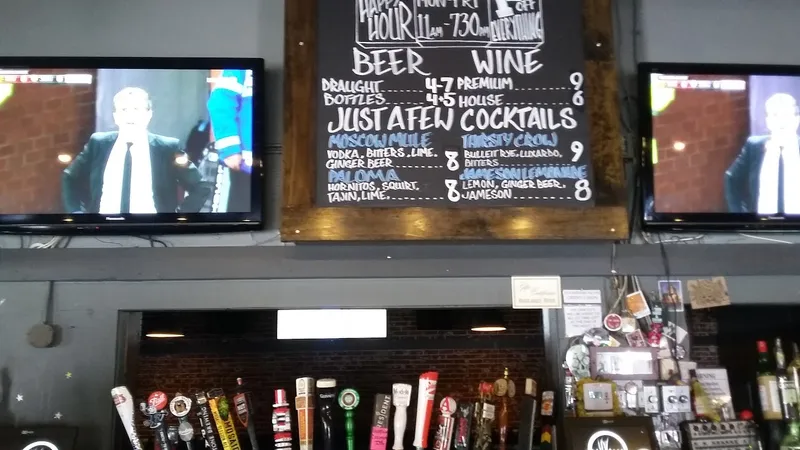 HAPPY
HOUR
MON-FRI
11AM - 730PM
1 OFF
EVERYTHING
BEER
DRAUGHT 4-7
BOTTLES 4-5
WINE
PREMIUM 9
HOUSE 6
JUST A FEW COCKTAILS
MOSCOW MULE
VODKA, BITTERS, LIME,
GINGER BEER 8
PALOMA
HORNITOS, SQUIRT,
TAJIN, LIME, 8
THIRSTY CROW
BULLEIT RYE, LUXARDO,
BITTERS 9
JAMESON LEMONADE
LEMON, GINGER BEER,
JAMESON 8
Panasonic
Panasonic